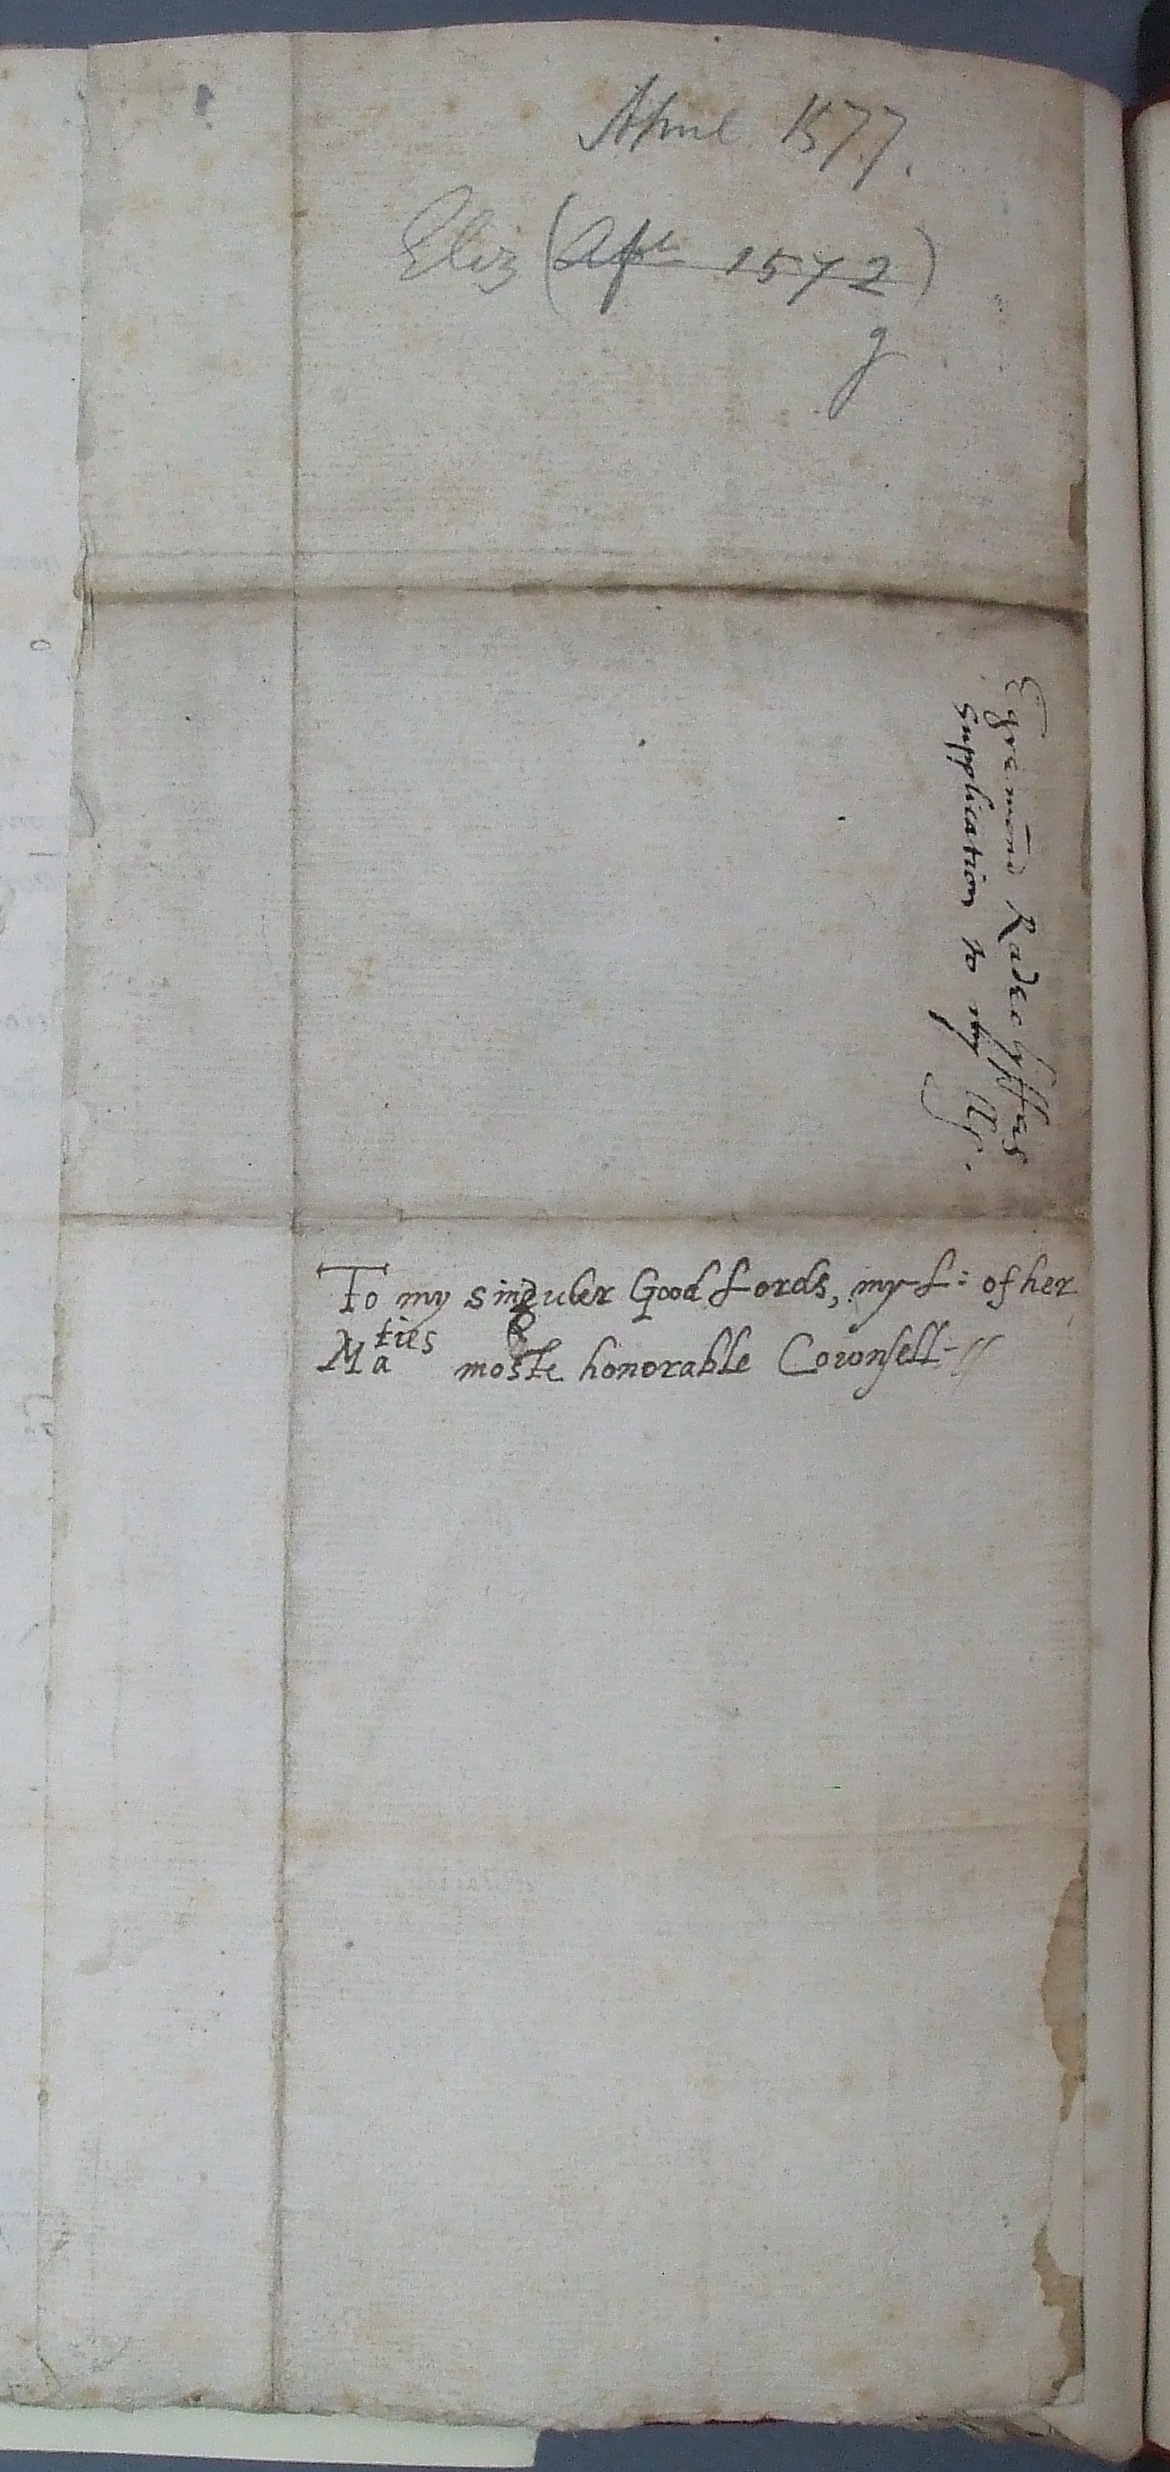 April 1577.
Eliz (Apl 1572)
g
Egremond Radeclyffes
supplication to my LLs.
To my singuler Good Lords, my L: of her
Maties moste honorable Counsell